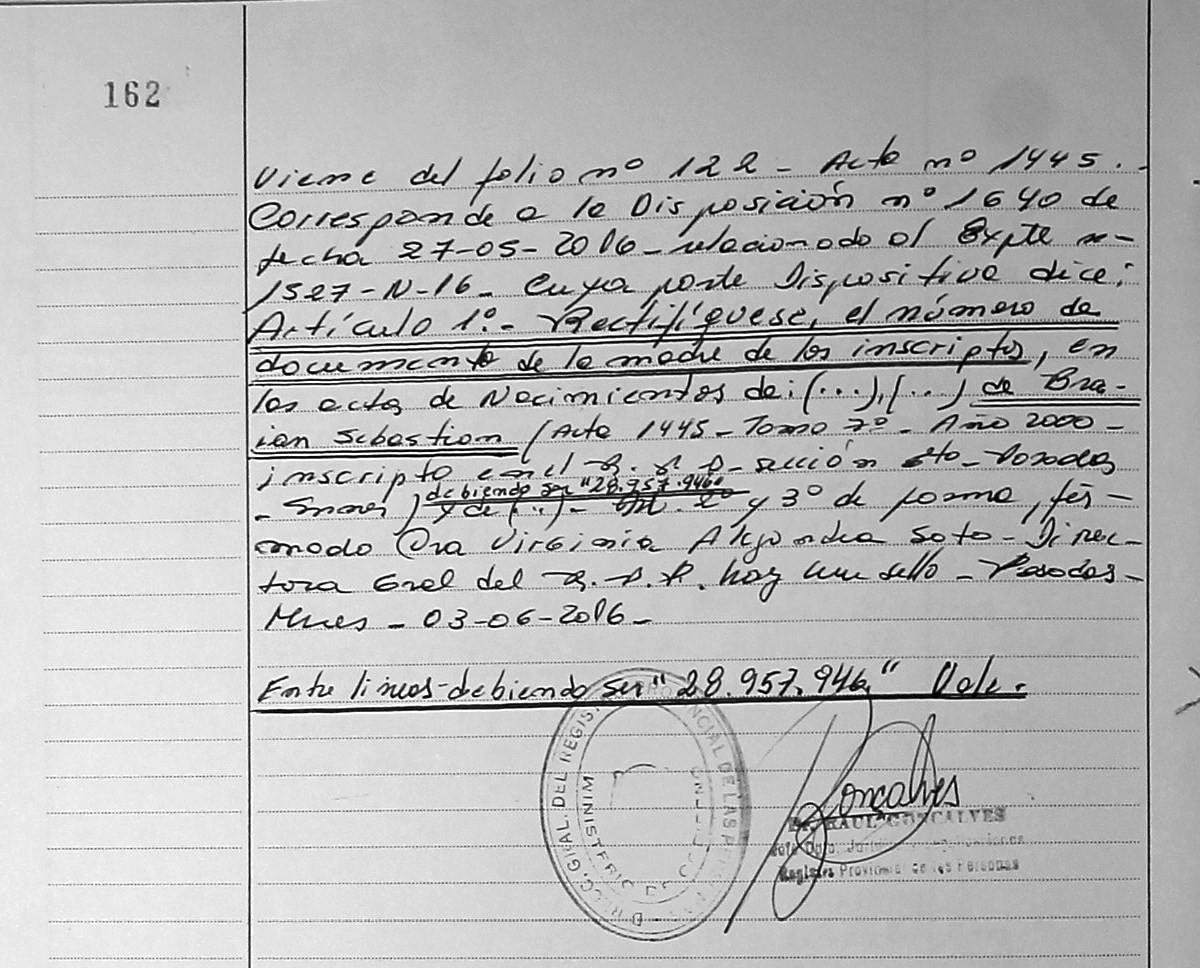 162
Viene del folio nº 122 - Acta nº 1445.-
Corresponde a la Disposición nº 1640 de
fecha 27-05-2016 - relacionado al Expte n-
1527-N-16 - Cuya parte Dispositiva dice:
Artículo 1º.- Rectifíquese, el número de
documento de la madre de los inscriptos, en
las actas de Nacimientos de: (...), (...) de Bra-
ian Sebastian (Acta 1445 - Tomo 7º - Año 2000 -
inscripto en el R. P. P - sección 6to - Posadas
debiendo ser "28.957.946"
- Mnes) y de (...) - Art. 2º y 3º de forma, fir-
mado Dra Virginia Alejandra Soto - Direc-
tora Gral del R. P. P. hay un sello - Posadas -
Mnes - 03-06-2016 -
Entre lineas - debiendo ser "28.957.946" Vale.
DIRECC. GRAL. DEL REGISTRO PROVINCIAL DE LAS PERSONAS
MINISTERIO DE GOBIERNO
MISIONES
Gonçalves
RAUL GONCALVES
Registro Provincial de las Personas